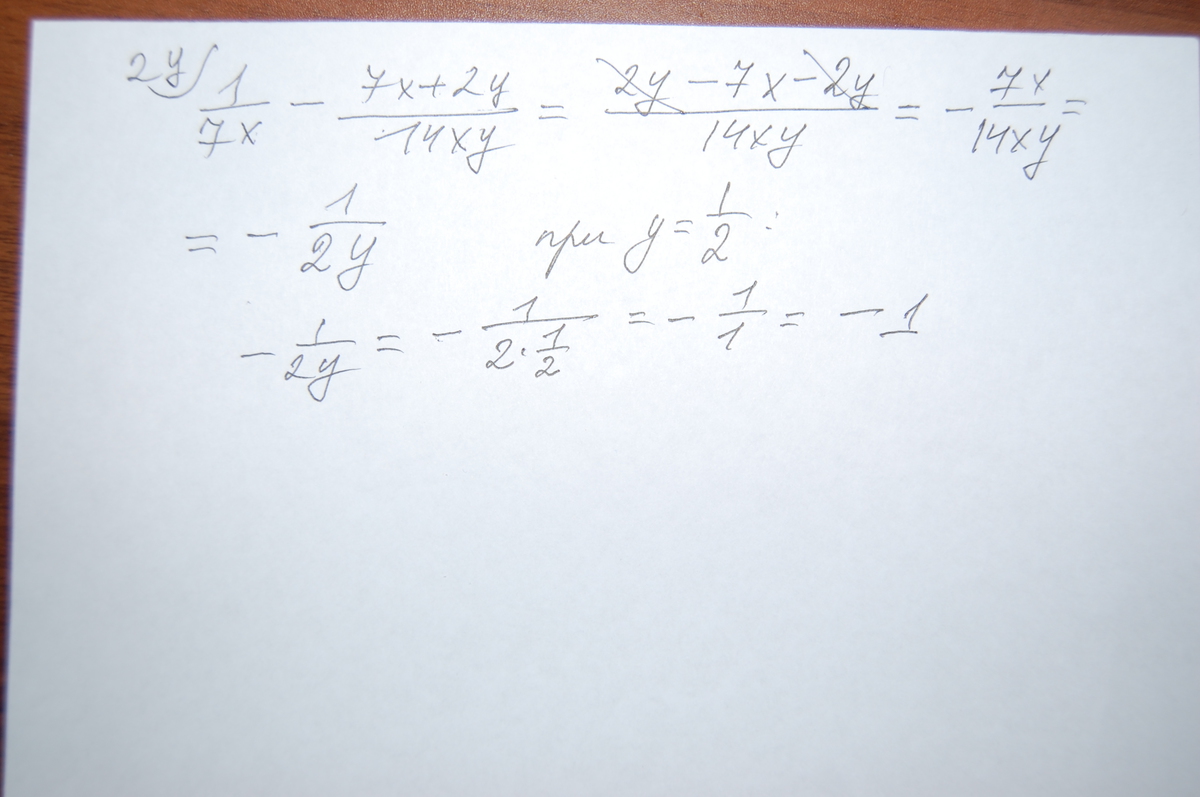 2y) 1/7x - (7x+2y)/14xy = (2y - 7x - 2y)/14xy = - 7x/14xy =
= - 1/2y при y = 1/2 :
- 1/2y = - 1/(2·1/2) = - 1/1 = - 1